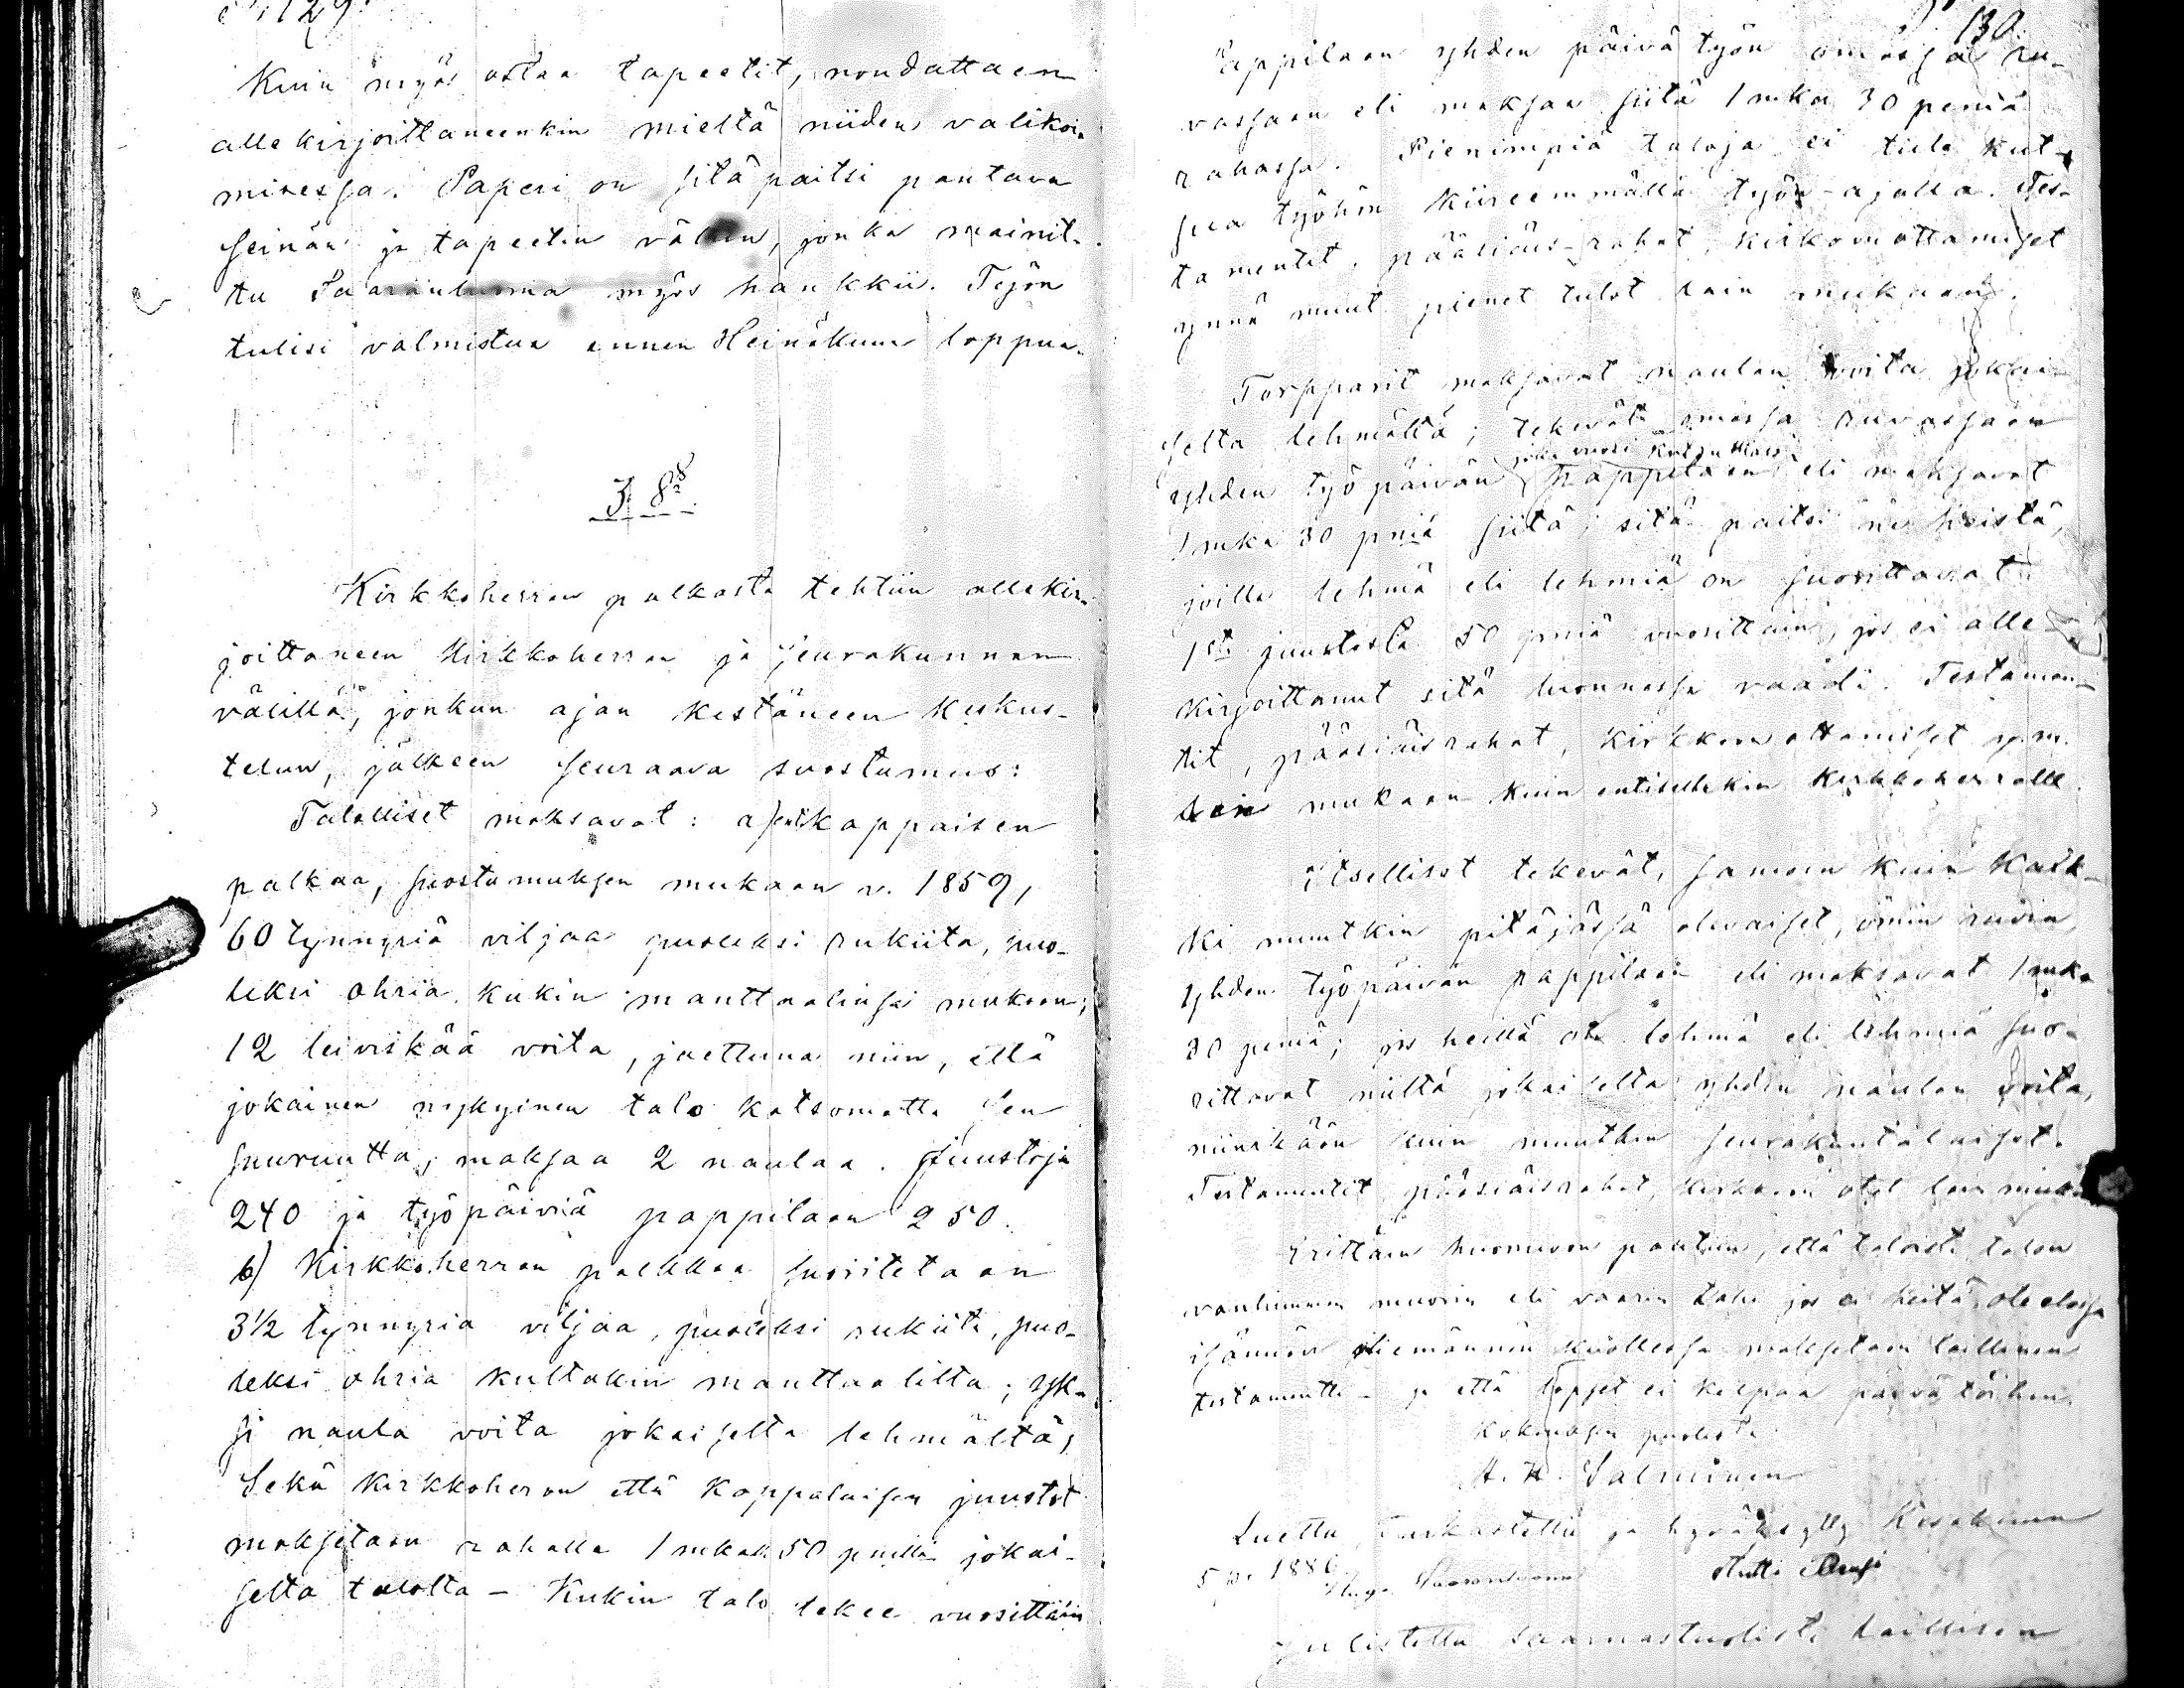 129
Kuin myös ostaa tapeetit, noudattaen
allekirjoittaneenkin mieltä niiden valikoi-
misessa. Paperi on sitäpaitsi pantava
seinän ja tapeetin väliin, jonka mainit-
tu Saarenluoma myös hankkii. Työn
tulisi valmistua ennen Heinäkuun loppua.
3 §
Kirkkoherran palkasta tehtiin allekir-
joittaneen Kirkkoherran ja seurakunnan
välillä, jonkun ajan kestäneen keskus-
telun, jälkeen seuraava suostumus:
Talolliset maksavat: a) kappaisen
palkaa, suostumuksen mukaan v. 1859,
60 tynnyriä viljaa puoleksi rukiita, puo-
leksi ohria, kukin manttaalinsa mukaan;
12 leiviskää voita, jaettuna niin, että
jokainen nykyinen talo katsomatta sen
suuruutta, maksaa 2 naulaa. Juustoja
240 ja työpäiviä pappilaan 250.
b) Kirkkoherran palkkaa suoritetaan
3½ tynnyriä viljaa, puoleksi rukiita, puo-
leksi ohria kultakin manttaalilta; yk-
si naula voita jokaiselta lehmältä;
Sekä kirkkoheran että kappalaisen juustot
maksetaan rahalla 1 mkalla 50 pnillä jokai-
selta talolta – Kukin talo tekee vuosittain
130.
Pappilaan yhden päivätyön omassa ru-
vassaan eli maksaa siitä 1 mka 30 peniä
rahassa. Pienimpiä taloja ei tule kut-
sua työhön kiireemmällä työn-ajalla. Tes-
tamentit, pääsiäis-rahat, kirkoonottamiset
ynnä muut pienet tulot lain mukaan.
Torpparit maksavat naulan voita jokai-
selta lehmältä; tekevät omassa ruvassaan
joka vuosi kutsuttaissa
yhden työpäivän pappilaan eli maksavat
1 mka 30 pniä siitä; sitä paitsi ne heistä,
joilla lehmä eli lehmiä on suorittavat
1 st juustosta 50 pniä vuosittain, jos ei alle-
kirjoittanut sitä luonnossa vaadi. Testamen-
tit, pääsiäisrahat, kirkkoon ottamiset y.m.
lain mukaan kuin entisellekin kirkkoherralle.
Itselliset tekevät, samoin kuin kaik-
ki muutkin pitäjässä olevaiset, omin ruvin
yhden työpäivän pappilaan eli maksavat 1 mka
30 peniä; jos heillä on lehmä eli lehmiä suo-
rittavat niiltä jokaiselta yhden naulan voita,
niinikään kuin muutkin seurakuntalaiset.
Testamentit, pääsiäisrahat, kirkoon otot lain mukaan
Erittäin huomioon pantiin, että taloista talon
vanhimman muorin eli vaarin tahi jos ei heitä ole elossa
isännän eli emännän kuollessa maksetaan laillinen
testamentti – ja että lapset ei kelpaa päivätöihin.
Kokouksen puolesta
H. K. Salminen
Luettu, tarkastettu ja hyväksytty Kesäkuun
5 p. 1886
Saarenluoma Antti
Julistettu saarnastuolista laillisen